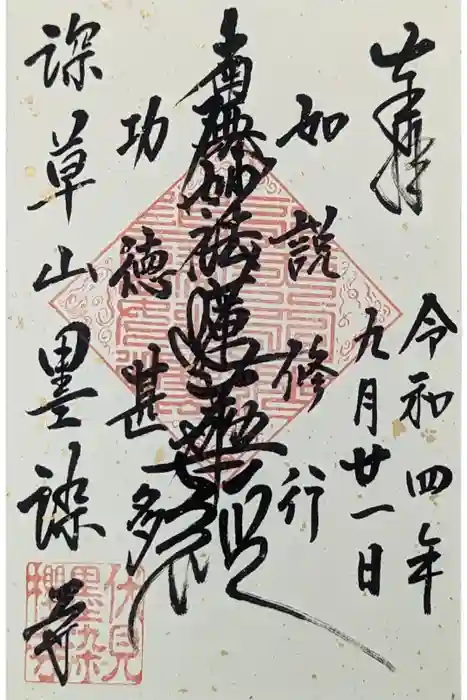 奉拝
令和四年
九月廿一日
如説修行
南無妙法蓮華経
功徳甚多
深草山墨染寺
伏見
墨染
櫻寺